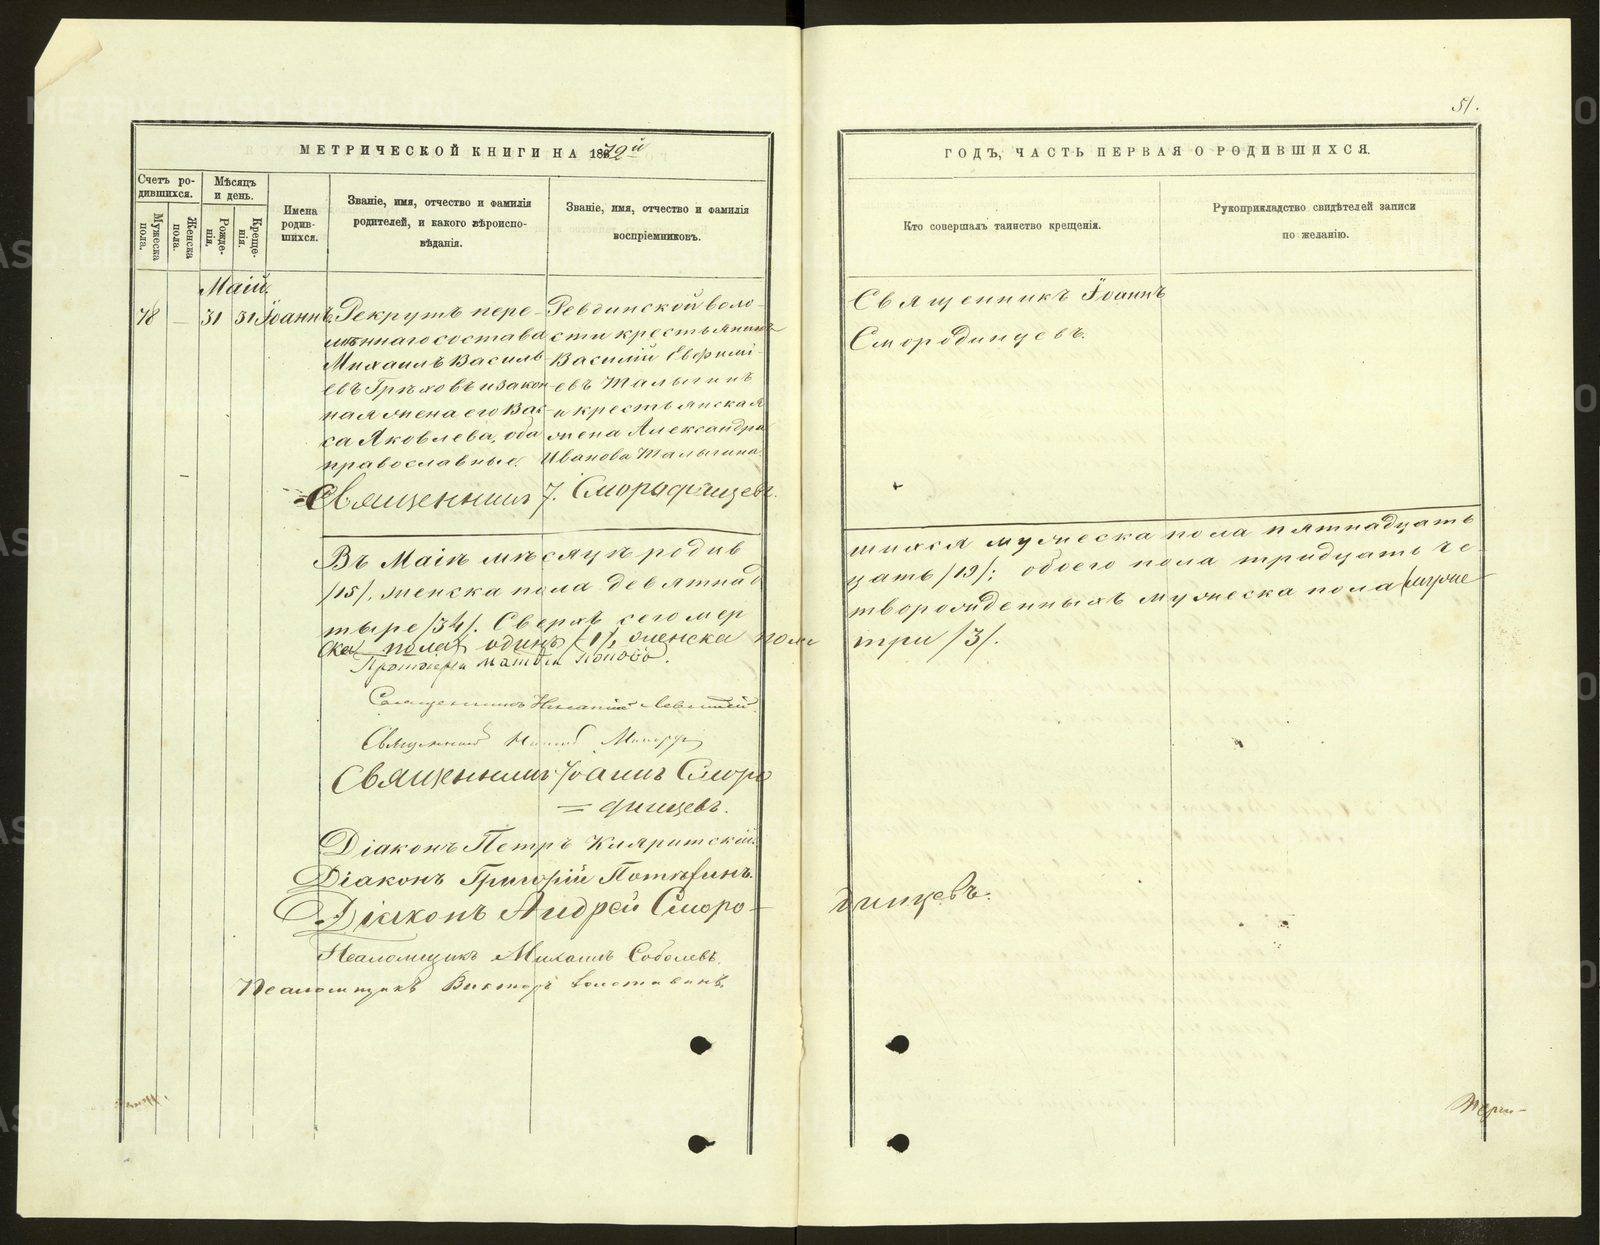 51.
МЕТРИЧЕСКОЙ КНИГИ НА 1879й
ГОДЪ, ЧАСТЬ ПЕРВАЯ О РОДИВШИХСЯ.
Счетъ ро-
дившихся.
Мужеска пола.
Женска пола.
Мѣсяцъ
и день.
Рожде-
нія.
Креще-
нія.
Имена
родив-
шихся.
Званіе, имя, отчество и фамилія
родителей, и какого вѣроиспо-
вѣданія.
Званіе, имя, отчество и фамилія
воспріемниковъ.
Кто совершалъ таинство крещенія.
Рукоприкладство свидѣтелей записи
по желанію.
Маій.
78 — 31 31 Іоаннъ.
Рекрутъ пере-
мѣннаго состава
Михаилъ Василь-
евъ Грѣховъ и закон-
ная жена его Вас-
са Яковлева, оба
православные.
Ревдинской воло-
сти крестьянинъ
Василій Евфимі-
евъ Талыгинъ
и крестьянская
жена Александра
Иванова Талыгина.
Священникъ Іоаннъ
Смородинцевъ.
Священникъ І. Смородинцевъ.
Въ Маіѣ мѣсяцѣ родив
шихся мужеска пола пятнадцать
/15/, женска пола девятнад
цать /19/; обоего пола тридцать че-
тыре /34/. Сверхъ сего мер
творожденныхъ мужеска пола
ска пола одинъ /1/, женска пола
три /3/.
Протоіерей Матѳей Поповъ.
Священникъ
Священникъ
Священникъ Іоаннъ Сморо
=динцевъ.
Діаконъ Петръ Кляритскій.
Діаконъ Григорій
Діаконъ Андрей Сморо-
динцевъ.
Псаломщикъ Михаилъ Соболевъ.
Псаломщикъ Викторъ